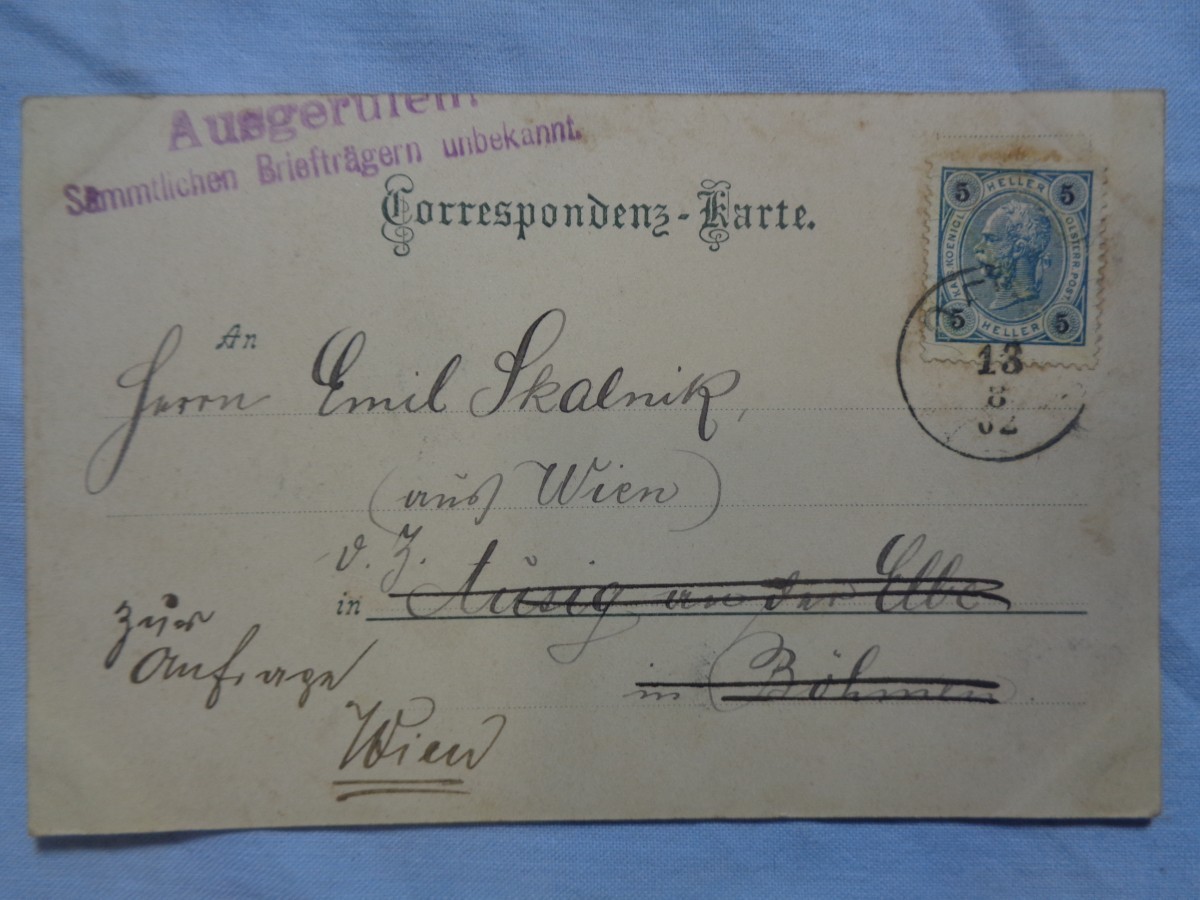 Ausgerufen!
Sämmtlichen Briefträgern unbekannt.
Correspondenz-Karte.
5 HELLER 5
KAIS. KOENIGL. OESTERR. POST
5 HELLER 5
13
8
02
An
Herrn Emil Skalnik,
(aus Wien)
d. Z.
in Aussig an der Elbe
in Böhmen.
zur
Anfrage
Wien